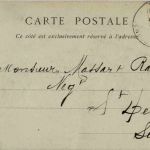 CARTE POSTALE
Ce côté est exclusivement réservé à l'adresse
Monsieur Massart Ra
Negt
St De